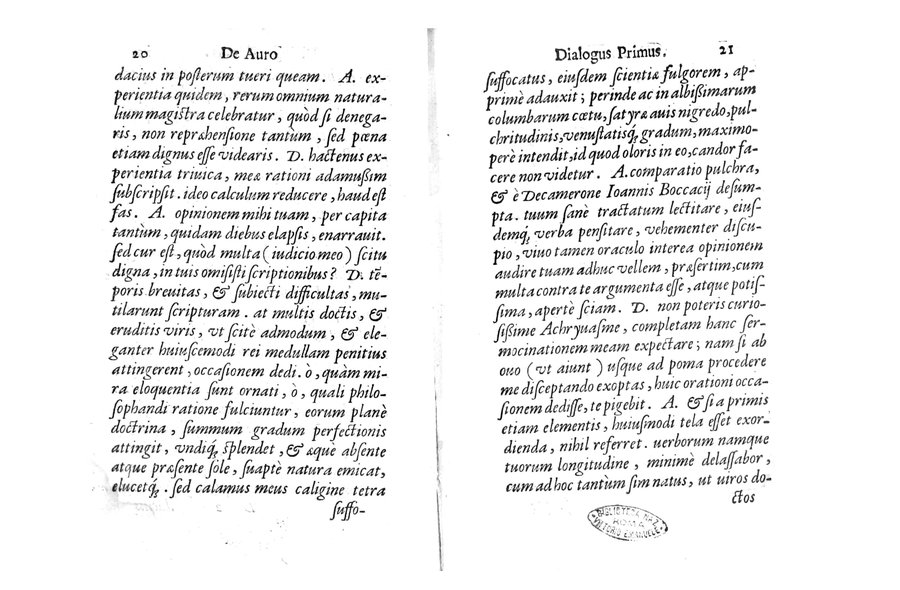 20 De Auro
dacius in poſterum tueri queam. A. ex-
perientia quidem, rerum omnium natura-
lium magiſtra celebratur, quòd ſi denega-
ris, non repræhenſione tantùm, ſed pœna
etiam dignus eſſe videaris. D. hactenus ex-
perientia triuica, meæ rationi adamuſſim
ſubſcripſit. ideo calculum reducere, haud eſt
fas. A. opinionem mihi tuam, per capita
tantùm, quidam diebus elapſis, enarrauit.
ſed cur eſt, quòd multa (iudicio meo) ſcitu
digna, in tuis omiſiſti ſcriptionibus? D. tē-
poris breuitas, & ſubiecti difficultas, mu-
tilarunt ſcripturam. at multis doctis, &
eruditis viris, vt ſcitè admodum, & ele-
ganter huiuſcemodi rei medullam penitius
attingerent, occaſionem dedi. ò, quàm mi-
ra eloquentia ſunt ornati, ò, quali philo-
ſophandi ratione fulciuntur, eorum planè
doctrina, ſummum gradum perfectionis
attingit, vndiq; ſplendet, & æque abſente
atque præſente ſole, ſuaptè natura emicat,
elucetq;. ſed calamus meus caligine tetra
ſuffo-
Dialogus Primus. 21
ſuffocatus, eiuſdem ſcientiæ fulgorem, ap-
primè adauxit; perinde ac in albiſſimarum
columbarum cœtu, ſatyræ auis nigredo, pul-
chritudinis, venuſtatisq; gradum, maximo-
perè intendit, id quod oloris in eo, candor fa-
cere non videtur. A. comparatio pulchra,
& è Decamerone Ioannis Boccacij deſum-
pta. tuum ſanè tractatum lectitare, eiuſ-
demq; verba penſitare, vehementer diſcu-
pio, viuo tamen oraculo interea opinionem
audire tuam adhuc vellem, præſertim, cum
multa contra te argumenta eſſe, atque potiſ-
ſima, apertè ſciam. D. non poteris curio-
ſiſſime Achryuaſme, completam hanc ſer-
mocinationem meam expectare; nam ſi ab
ouo (vt aiunt) uſque ad poma procedere
me diſceptando exoptas, huic orationi occa-
ſionem dediſſe, te pigebit. A. & ſi a primis
etiam elementis, huiuſmodi tela eſſet exor-
dienda, nihil referret. uerborum namque
tuorum longitudine, minimè delaſſabor,
cum ad hoc tantùm ſim natus, ut uiros do-
ctos
BIBLIOTECA NAZ.
ROMA
VITTORIO EMANUELE